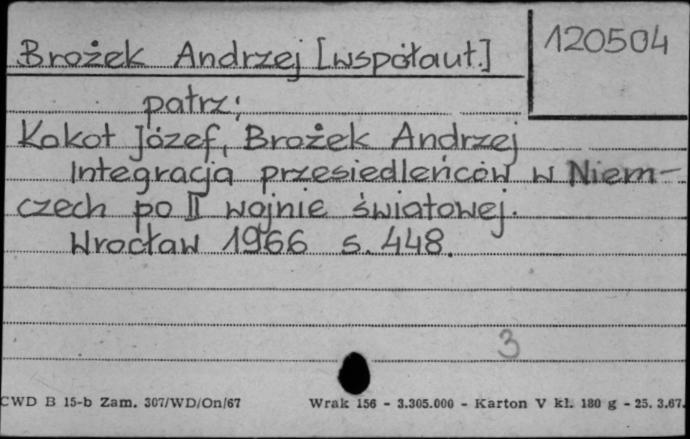 Brożek Andrzej [współaut.]
120504
patrz:
Kokot Józef, Brożek Andrzej
Integracja przesiedleńców w Niem-
czech po II wojnie światowej.
Wrocław 1966 s. 448.
3
CWD B 15-b Zam. 307/WD/On/67 Wrak 156 - 3.305.000 - Karton V kl. 180 g - 25. 3.67.